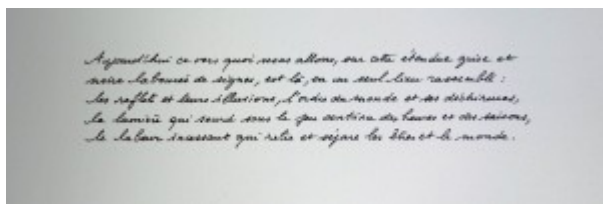 Aujourd'hui ce vers quoi nous allons, sur cette étendue grise et
noire labourée de signes, est là, en un seul lieu rassemblé :
les reflets et leurs illusions, l'ordre du monde et ses déchirures,
la lumière qui sourd sous le feu continu des heures et des saisons,
le labeur incessant qui relie et sépare les êtres et le monde.